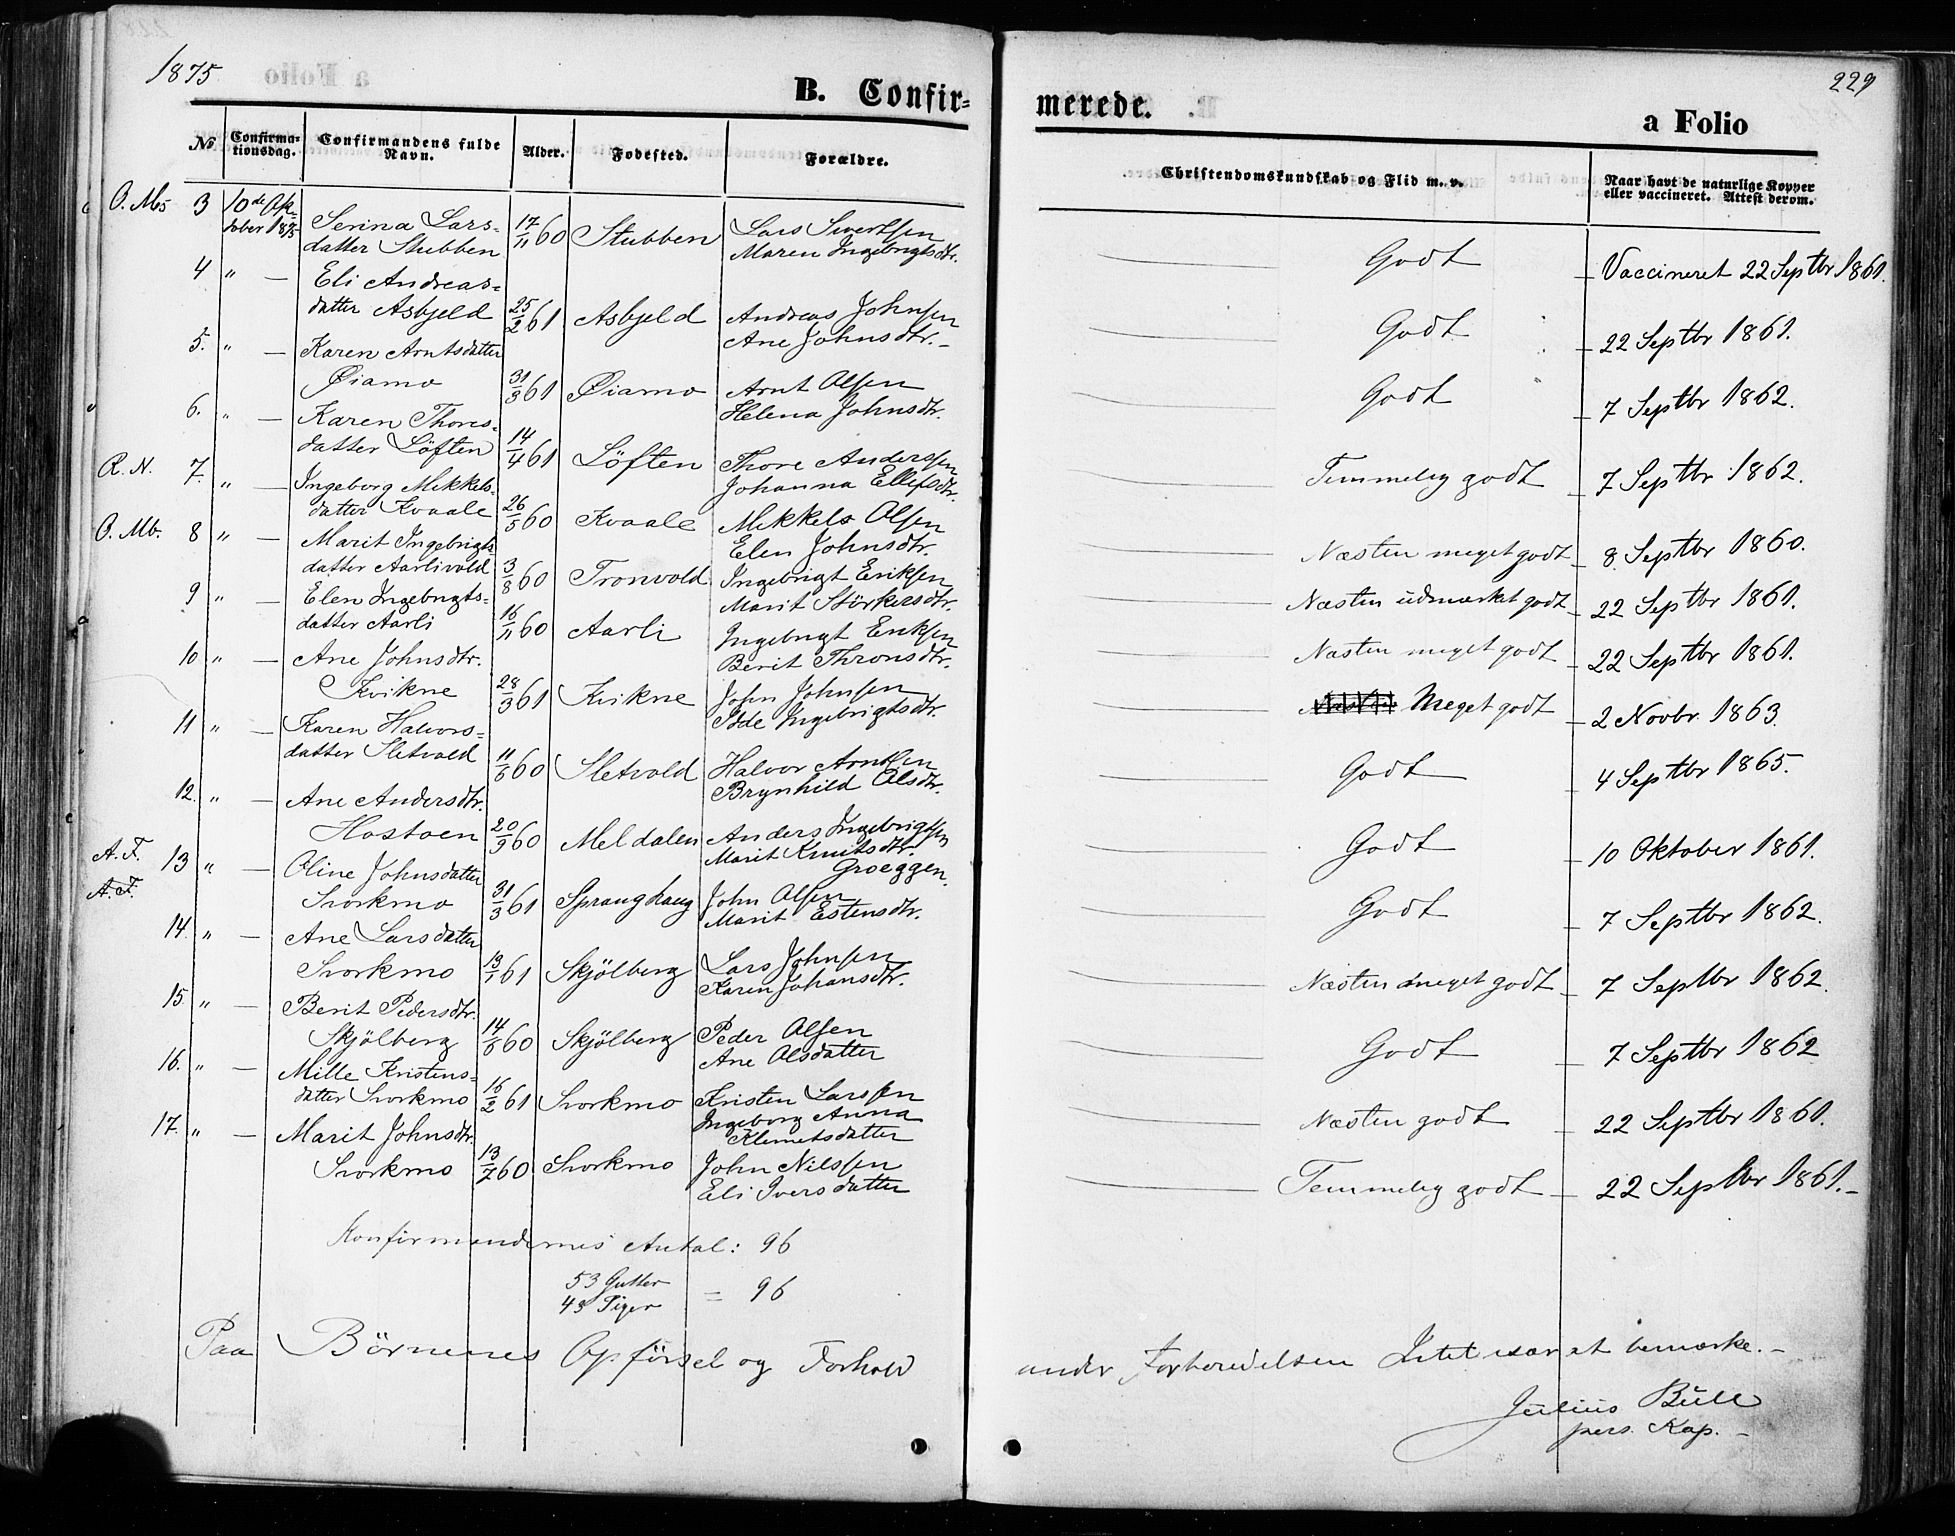 1875
229
B. Confir-
merede.
a Folio
No
Confirma-
tionsdag.
Confirmandens fulde
Navn.
Alder.
Fødested.
Forældre.
Christendomskundskab og Flid m. v.
Naar havt de naturlige Kopper
eller vaccineret. Attest derom.
3 10de Ok- Serina Lars- 17/11 60 Stubben Lars Sivertsen
tober 1875 datter Stubben Maren Ingebrigtsdtr.
Godt Vaccineret 22 Septbr 1861.
4 " — Eli Andreas-
datter Asbjeld 25/2 61 Asbjeld Andreas Johnsen
Ane Johnsdtr.-
Godt 22 Septbr 1861.
5. " — Karen Arntsdatter
Øiamo 31/3 61 Øiamo Arnt Olsen
Helena Johnsdtr.
Godt 7 Septbr 1862.
6. " — Karen Thores-
datter Löften 14/4 61 Löften Thore Anderssen
Johanna Ellefsdtr.
Temmelig godt 7 Septbr 1862.
R. N. 7. " — Ingeborg Mikkels-
datter Kvaale 26/5 60 Kvaale Mikkels Olsen
Elen Johnsdtr.
Næsten meget godt 8 Septbr 1860.
O. Mb. 8 " — Marit Ingebrigts-
datter Aarlivold 3/8 60 Tronvold Ingebrigt Eriksen
Marit Störkersdtr.
Næsten udmærket godt 22 Septbr 1861.
9 " — Elen Ingebrigts-
datter Aarli 16/11 60 Aarli Ingebrigt Eriksen
Berit Thronsdtr.
Næsten meget godt 22 Septbr 1861.
10 " — Ane Johnsdtr.
Kvikne 28/3 61 Kvikne John Johnsen
Ingebrigtsdtr.
Meget godt 2 Novbr. 1863.
11 " — Karen Halvors-
datter Sletvold 11/6 60 Sletvold Halvor Arntsen
Brynhild Olsdtr.
Godt 4 Septbr 1865.
12. " — Ane Andersdtr.
Hostoen 20/9 60 Meldalen Anders Ingebrigtsen
Marit Knutsdtr.
Groeggen.
Godt 10 Oktober 1861.
A. F. 13 " — Oline Johnsdatter
A. F.
Svorkmo 31/3 61 Spranghaug John Olsen
Marit Estensdtr.
Godt 7 Septbr 1862.
14. " — Ane Larsdatter
Svorkmo 13/1 61 Skjölberg Lars Johnsen
Karen Johansdtr.
Næsten meget godt 7 Septbr 1862.
15 " — Berit Pedersdtr.
Skjölberg 14/6 60 Skjölberg Peder Olsen
Ane Olsdatter
Godt 7 Septbr 1862
16. " — Mille Kristens-
datter Svorkmo 16/2 61 Svorkmo Kristen Larssen
Ingeborg Anna
Klemetsdatter
Næsten godt 22 Septbr 1861.
17. " — Marit Johnsdtr.
Svorkmo 13/7 60 Svorkmo John Nilssen
Eli Iversdatter
Temmelig godt 22 Septbr 1861.-
Konfirmandernes Antal: 96
53 Gutter
43 Piger = 96
Paa Börnenes Opförsel og Forhold under Forberedelsen Intet var at bemærke.-
Julius Bull
pers. Kap.-